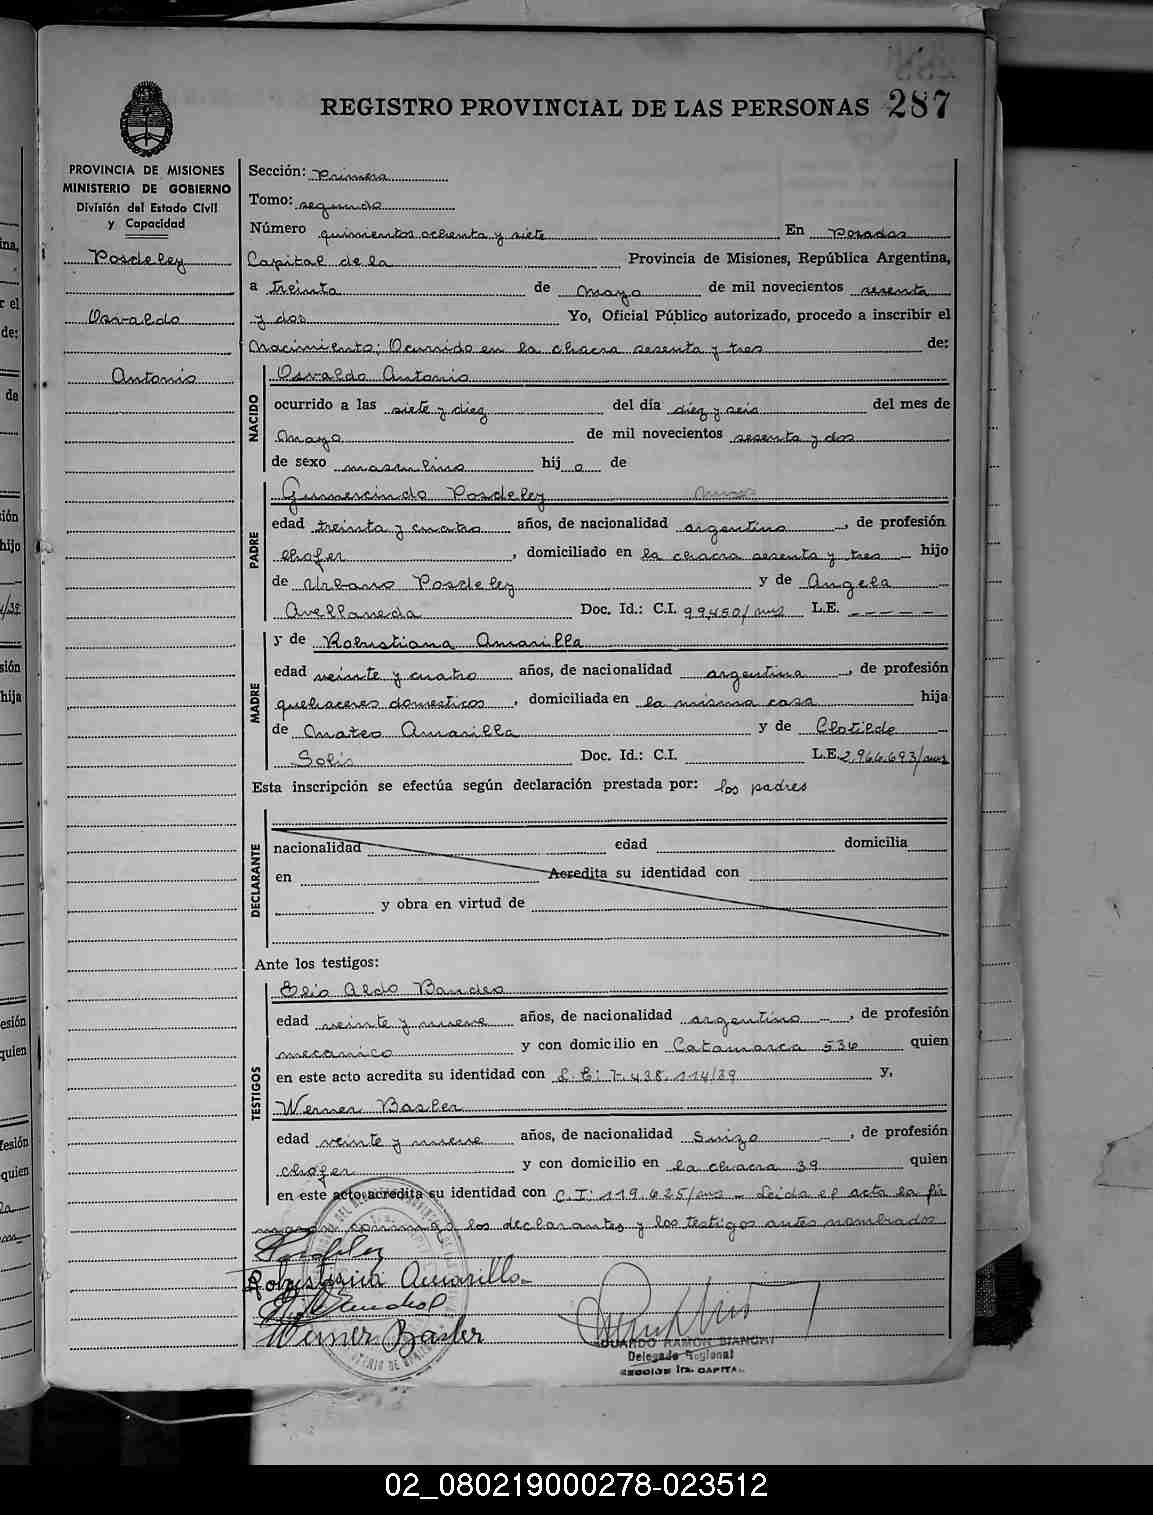 REGISTRO PROVINCIAL DE LAS PERSONAS 287
PROVINCIA DE MISIONES
MINISTERIO DE GOBIERNO
División del Estado Civil
y Capacidad
Posdeley
Osvaldo
Antonio
Sección: Primera
Tomo: segundo
Número quinientos ochenta y siete En Posadas
Capital de la Provincia de Misiones, República Argentina,
a treinta de mayo de mil novecientos sesenta
y dos Yo, Oficial Público autorizado, procedo a inscribir el
Nacimiento; Ocurrido en la chacra sesenta y tres de:
NACIDO
Osvaldo Antonio
ocurrido a las siete y diez del día diez y seis del mes de
mayo de mil novecientos sesenta y dos
de sexo masculino hij o de
PADRE
Gumercindo Posdeley
edad treinta y cuatro años, de nacionalidad argentino —, de profesión
chofer, domiciliado en la chacra sesenta y tres — hijo
de Urbano Posdeley y de Angela —
Avellaneda Doc. Id.: C.I. 99,450/mns L.E. — — — — —
MADRE
y de Robustiana Amarilla
edad veinte y cuatro años, de nacionalidad argentina —, de profesión
quehaceres domesticos, domiciliada en la misma casa hija
de Mateo Amarilla y de Clotilde —
Solis Doc. Id.: C.I. L.E. 2.966.693/mns
Esta inscripción se efectúa según declaración prestada por: los padres
DECLARANTE
nacionalidad edad domicilia
en Acredita su identidad con
y obra en virtud de
Ante los testigos:
TESTIGOS
Elio Aldo Bandeo
edad veinte y nueve años, de nacionalidad argentino —, de profesión
mecanico y con domicilio en Catamarca 536 quien
en este acto acredita su identidad con L. E: 7.438.114/39 y,
Werner Basler
edad veinte y nueve años, de nacionalidad Suizo —, de profesión
chofer y con domicilio en la chacra 39 quien
en este acto acredita su identidad con C.I: 119.625/mns — Leida el acta la fir
man conmigo los declarantes y los testigos antes nombrados
Posdeley
Robustiana Amarilla
Werner Basler
EDUARDO RAMON BIANCHI
Delegado Regional
SECCION 1ra. CAPITAL
02_080219000278-023512